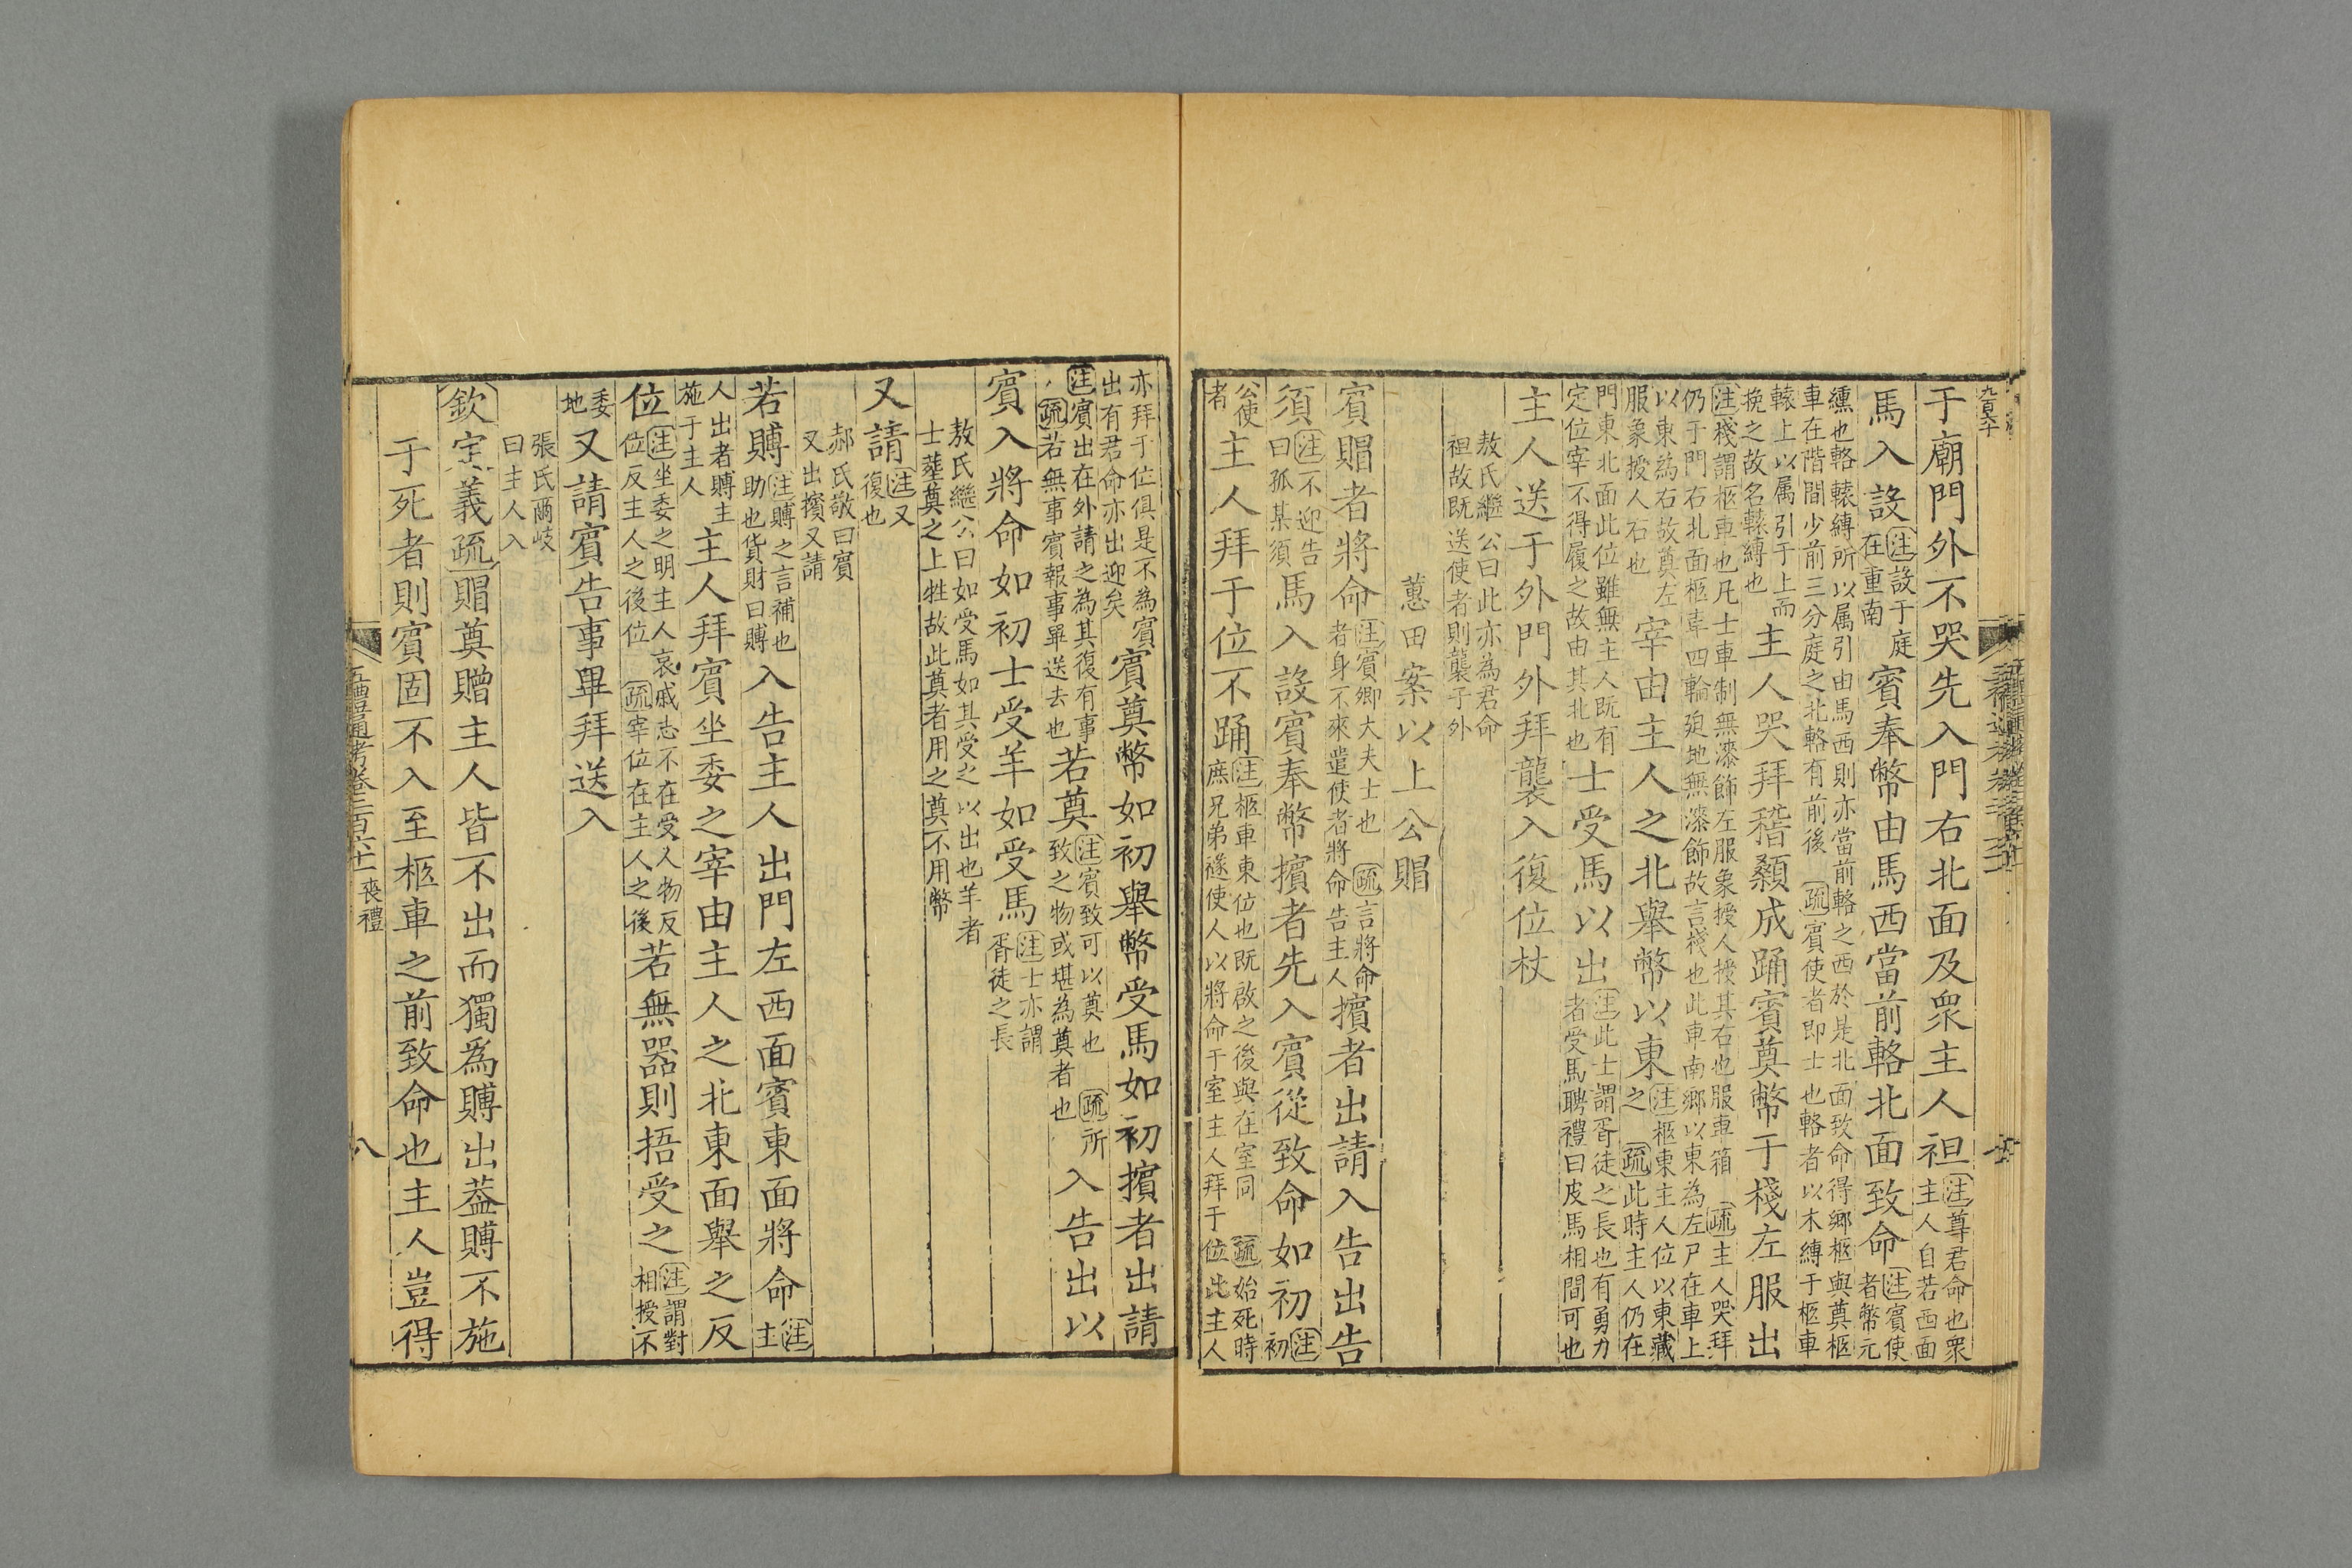 九百六十
于廟門外不哭先入門右北面及衆主人袒注尊君命也衆主人自若西面
馬入設注設于庭在重南賓奉幣由馬西當前輅北面致命注賓使者幣元
纁也輅轅縛所以属引由馬西則亦當前輅之西於是北面致命得鄉柩與奠柩車在階間少前三分庭之北輅有前後疏賓使者即士也輅者以木縛于柩車
轅上以属引于上而挽之故名轅縛也主人哭拜稽顙成踊賓奠幣于棧左服出
注棧謂柩車也凡士車制無漆飾左服象授人授其右也服車箱疏主人哭拜仍于門右北面柩車四輪廹地無漆飾故言棧也此車南鄉以東為左尸在車上
以東為右故奠左服象授人右也宰由主人之北舉幣以東注柩東主人位以東藏之疏此時主人仍在
門東北面此位雖無主人既有定位宰不得履之故由其北也士受馬以出注此士謂胥徒之長也有勇力者受馬聘禮曰皮馬相間可也
主人送于外門外拜襲入復位杖
敖氏繼公曰此亦為君命袒故既送使者則襲于外
蕙田案以上公賵
賓賵者將命注賓卿大夫士也疏言將命者身不來遣使者將命告主人擯者出請入告出告
須注不迎告曰孤某須馬入設賓奉幣擯者先入賓從致命如初注初
公使者主人拜于位不踊注柩車東位也既啟之後與在室同疏始死時庶兄弟襚使人以將命于室主人拜于位此主人
亦拜于位俱是不為賓出有君命亦出迎矣賓奠幣如初舉幣受馬如初擯者出請
注賓出在外請之為其復有事疏若無事賓報事畢送去也若奠注賓致可以奠也疏所致之物或堪為奠者也入告出以
賓入將命如初士受羊如受馬注士亦謂胥徒之長
敖氏繼公曰如受馬如其受之以出也羊者士葬奠之上牲故此奠者用之奠不用幣
又請注又復也
郝氏敬曰賓又出擯又請
若賻注賻之言補也助也貨財曰賻入告主人出門左西面賓東面將命注主
人出者賻主施于主人主人拜賓坐委之宰由主人之北東面舉之反
位注坐委之明主人哀戚志不在受人物反位反主人之後位疏宰位在主人之後若無器則捂受之注謂對相授不
委地又請賓告事畢拜送入
張氏爾岐曰主人入
欽定義疏賵奠贈主人皆不出而獨爲賻出葢賻不施
于死者則賓固不入至柩車之前致命也主人豈得
五禮通考卷二百六十一 喪禮 八